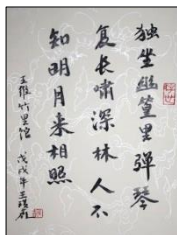 独坐幽篁里弹琴
复长啸深林人不
知明月来相照
王维竹里馆 戊戌年王